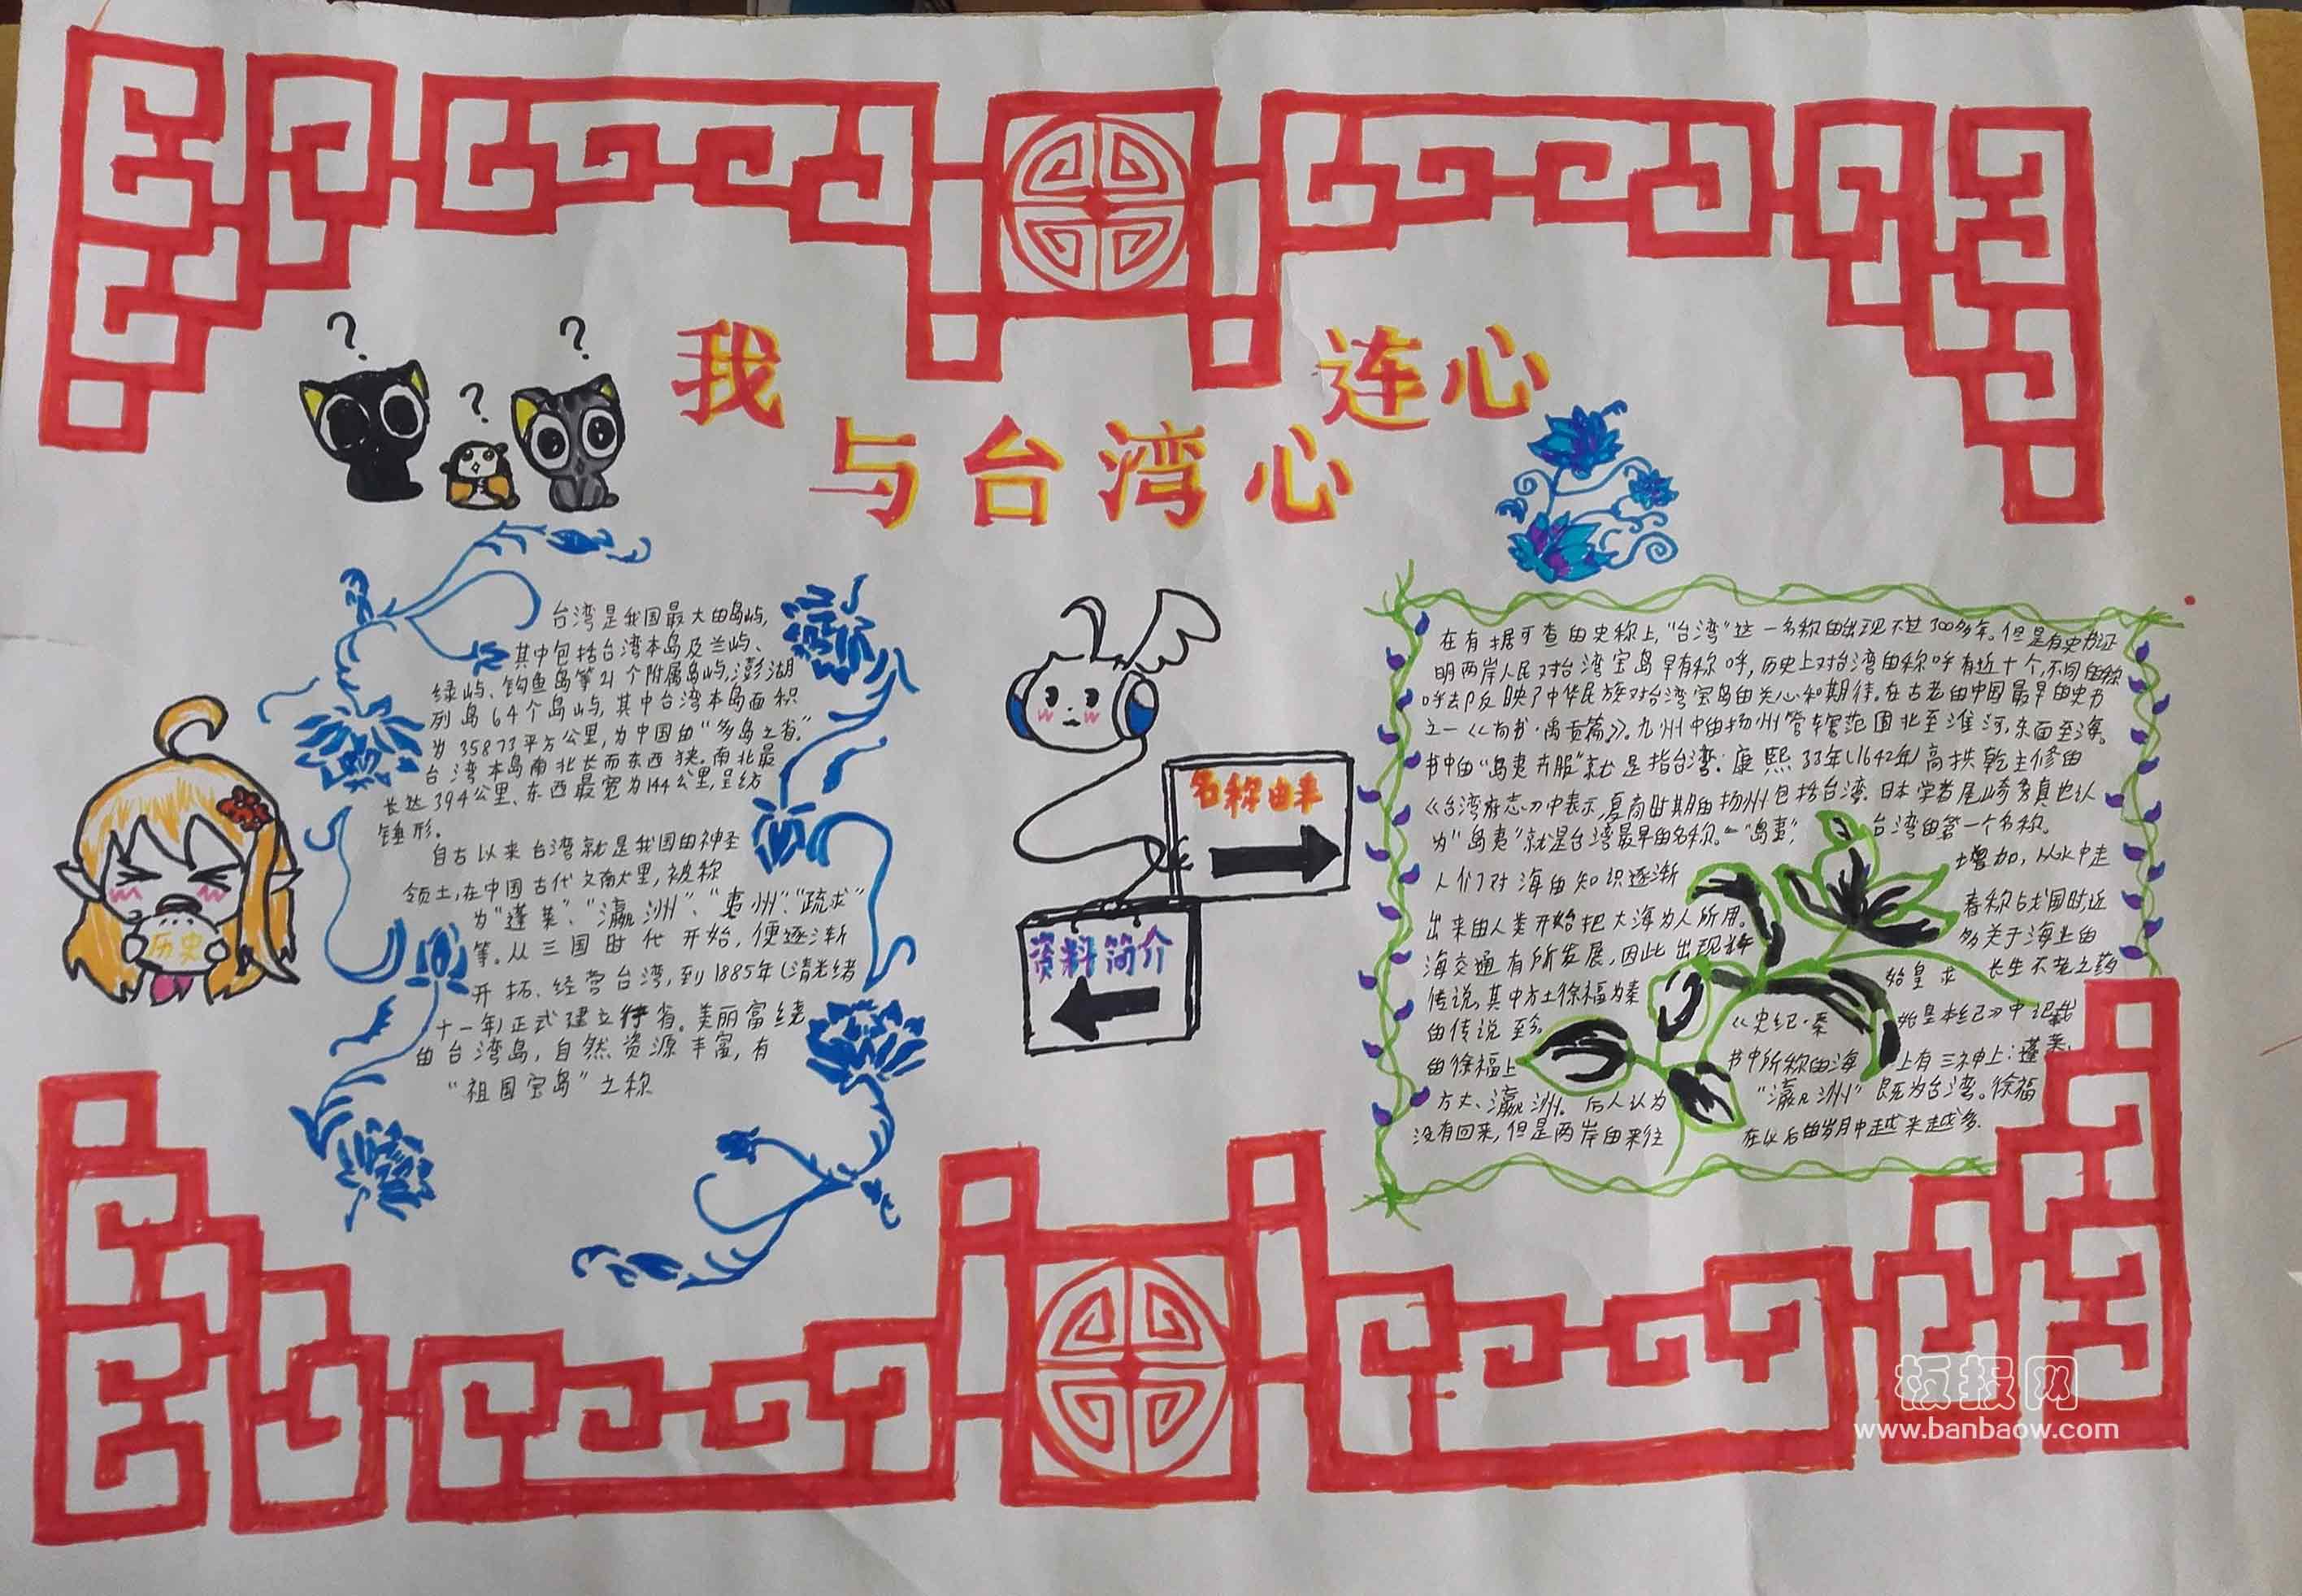 我
与台湾心
连心
? ? ?
台湾是我国最大的岛屿,
其中包括台湾本岛及兰屿、
绿屿、钩鱼岛等21个附属岛屿,澎湖
列岛64个岛屿,其中台湾本岛面积
为35873平方公里,为中国的“多岛之省”.
台湾本岛南北长而东西狭.南北最
长达394公里、东西最宽为144公里,呈纺
锤形.
自古以来台湾就是我国的神圣
领土,在中国古代文献里,被称
为“蓬莱”、“瀛洲”、“夷州”、“疏求”
等.从三国时代开始,便逐渐
开拓、经营台湾,到1885年(清光绪
十一年)正式建立行省.美丽富绕
的台湾岛,自然资源丰富,有
“祖国宝岛”之称
历史
名称由来
资料简介
在有据可查的史称上,“台湾”这一名称的出现不过300多年。但是有史书证
明两岸人民对台湾宝岛早有称呼,历史上对台湾的称呼有近十个,不同的称
呼去反映了中华民族对台湾宝岛的关心和期待.在古老的中国最早的史书
之一《尚书·禹贡篇》。九州中的扬州管辖范围北至淮河,东面至海。
书中的“岛夷卉服”就是指台湾;康熙33年(1642年)高拱乾主修的
《台湾府志》中表示,夏商时期的扬州包括台湾.日本学者尾崎秀真也认
为“岛夷”就是台湾最早的名称。“岛夷”,台湾的第一个名称。
人们对海的知识逐渐增加,从水中走
出来的人类开始把大海为人所用。春称占戈国时,近
海交通有所发展,因此出现许多关于海上的
传说,其中方士徐福为秦始皇求长生不老之药
的传说至今。《史纪·秦始皇本纪》中记载
的徐福上书中所称的海上有三神上:蓬莱、
方大、瀛洲。后人认为“瀛洲”既为台湾。徐福
没有回来,但是两岸的来往在以后的岁月中越来越多.
板报网
www.banbaow.com